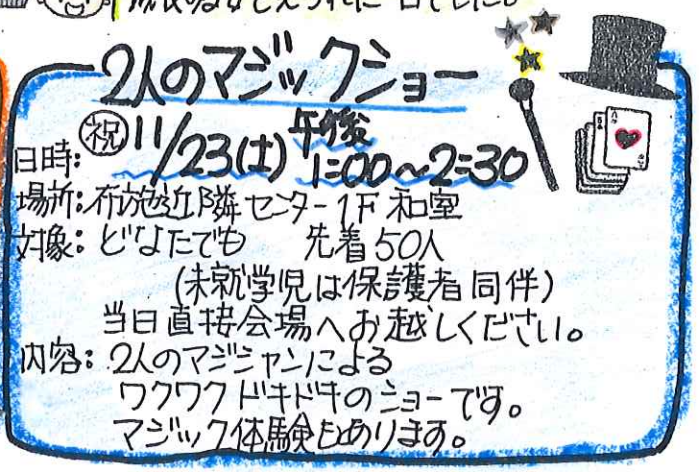 2人のマジックショー
日時:㊗11/23(土)午後1:00~2:30
場所:布施近隣センター1F 和室
対象:どなたでも 先着50人
(未就学児は保護者同伴)
当日直接会場へお越しください。
内容:2人のマジシャンによる
ワクワクドキドキのショーです。
マジック体験もあります。